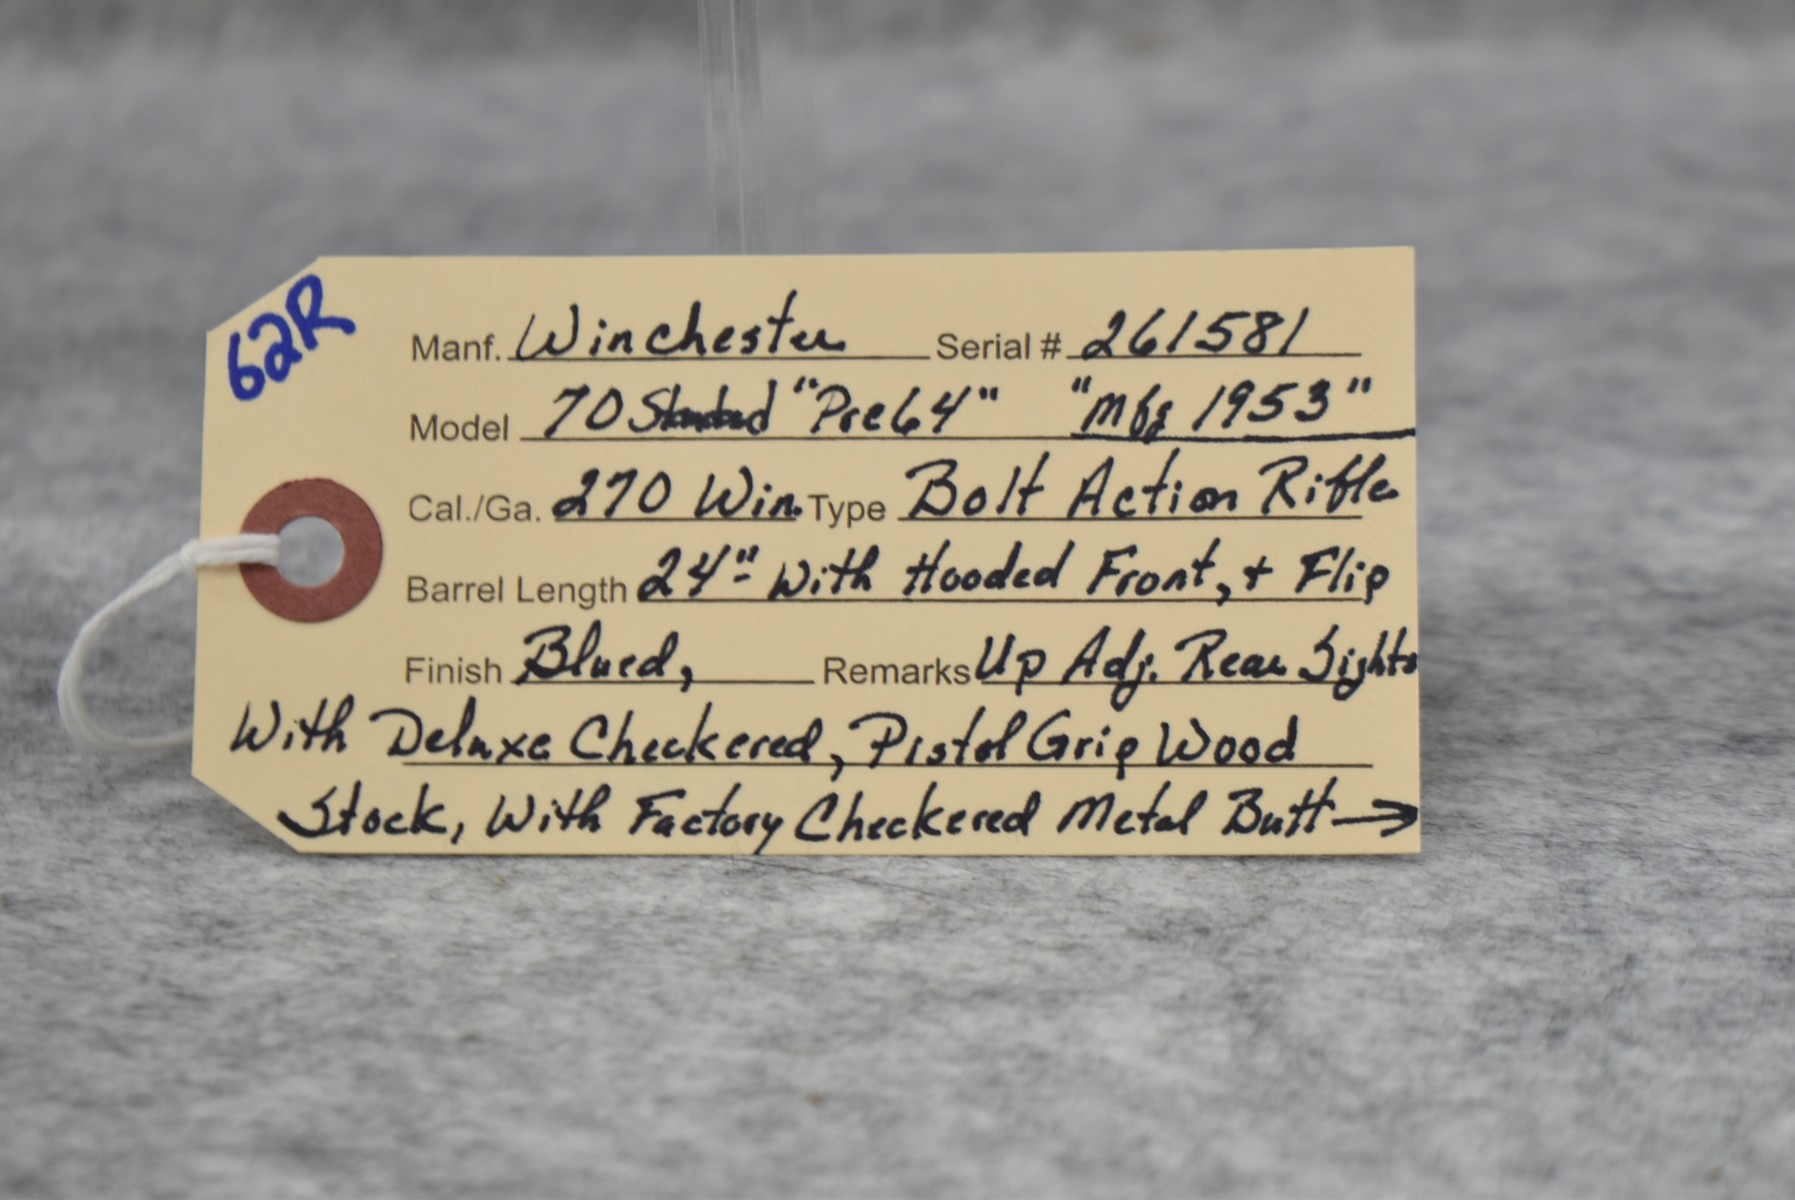 62R
Manf. Winchester Serial # 261581
Model 70 Standard "Pre 64" "Mfg 1953"
Cal./Ga. 270 Win. Type Bolt Action Rifle
Barrel Length 24" With Hooded Front, + Flip
Finish Blued, Remarks Up Adj. Rear Sights
With Deluxe Checkered, Pistol Grip Wood
Stock, With Factory Checkered Metal Butt →